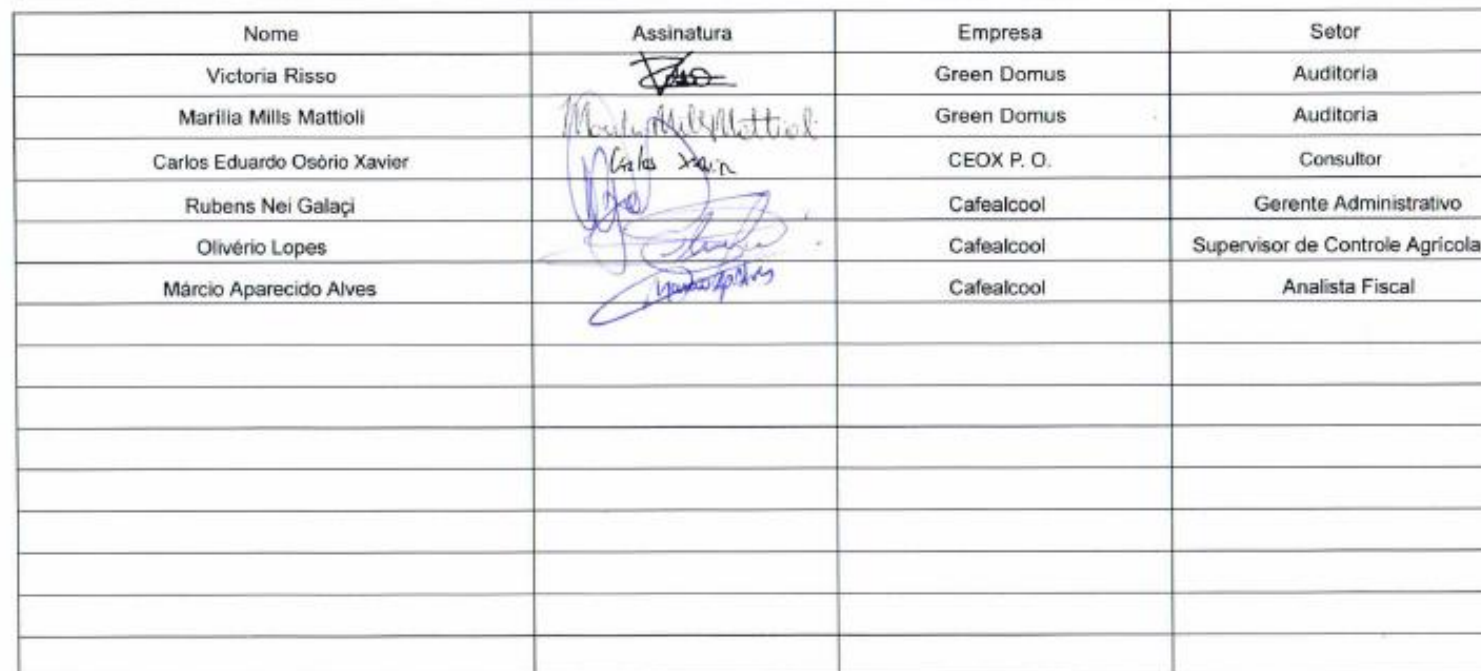 Nome Assinatura Empresa Setor
Victoria Risso Green Domus Auditoria
Marilia Mills Mattioli Marilia Mills Mattioli Green Domus Auditoria
Carlos Eduardo Osório Xavier Carlos Xavier CEOX P. O. Consultor
Rubens Nei Galaçi Cafealcool Gerente Administrativo
Olivério Lopes Cafealcool Supervisor de Controle Agrícola
Márcio Aparecido Alves Cafealcool Analista Fiscal